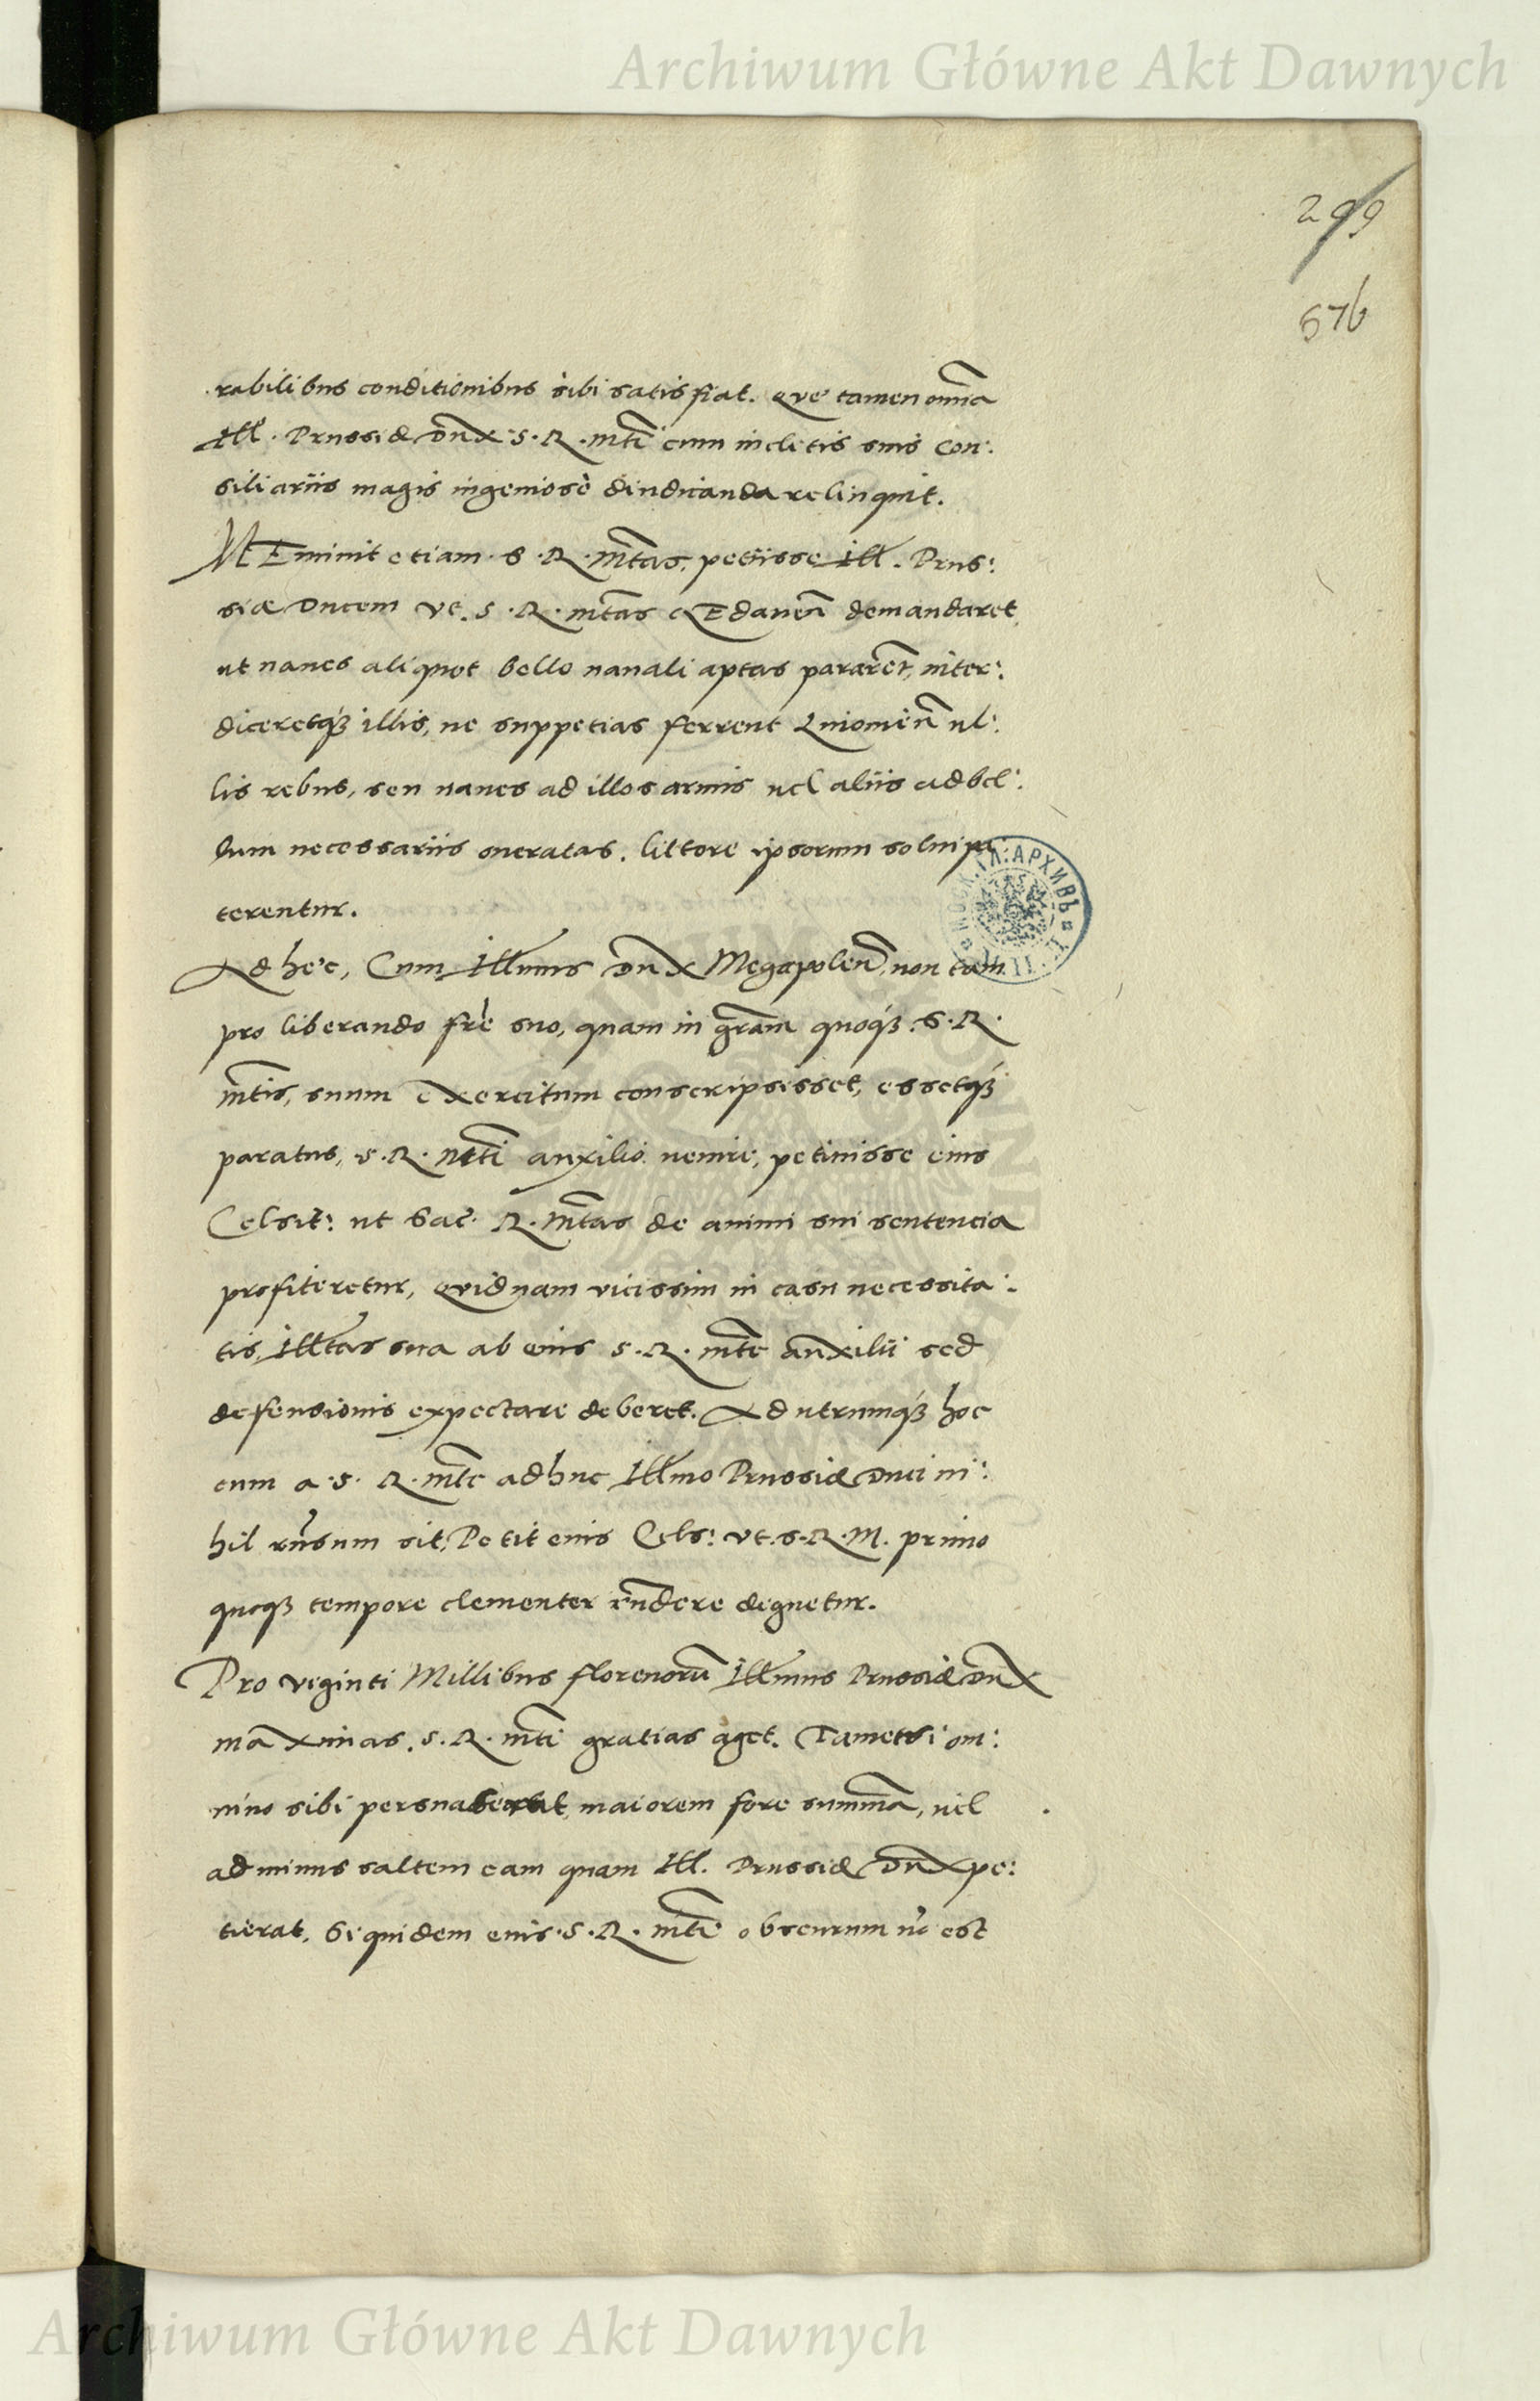 Archiwum Główne Akt Dawnych
299
576
rabilibus conditionibus sibi satisfiat. Que tamen om̄ia
Ill. Prussiæ Dux S. R. Mti cum inclitis suis con:
siliariis magis ingeniose diiudicanda relinquit.
MEminit etiam S. R. Mtas, petiisse Ill. Prus:
siæ Ducem ut S. R. Mtas Gedaneñ demandaret
ut naues aliquot bello nauali aptas pararent, inter:
diceretq́ue illis, ne suppetias ferrent Liuonieñ ul:
lis rebus, seu naues ad illos armis uel aliis ad bel:
lum necessariis oneratas. littore ipsorum solui pa:
terentur.
Ad hec, Cum Illmus Dux Megapoleñ, non tam
pro liberando fr̄e suo, quam in gr̄am quoq́ue S. R.
Mtis, suum exercitum conscripsisset, essetq́ue
paratus, S. R. Mti auxilio uenire, petiuisse eius
Celsit: ut Sac. R. Mtas de animi sui sentencia
profiteretur, Quidnam vicissim in casu necessita:
tis, Illtas sua ab eius S. R. Mte auxilii sed
defensionis expectare deberet. Ad utrumq́ue hoc
cum a S. R. Mte adhuc Illmo Prussiæ Duci ni:
hil rn̄sum sit, Petit eius Cels: ut S. R. M. primo
quoq́ue tempore clementer rn̄dere dignetur.
Pro viginti Millibus florenorū Illmus Prussiæ Dux
maximas S. R. Mti gratias aget. Tametsi om:
nino sibi persuaserat maiorem fore summā, uel
ad minus saltem eam quam Ill. Prussiæ Dux pe:
tierat. Siquidem eius S. R. Mti obscurum nō est
Archiwum Główne Akt Dawnych